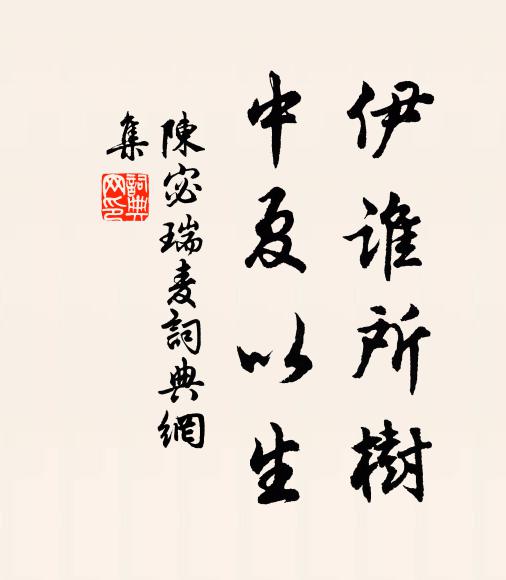 伊誰所樹
中夏以生
陳宓瑞麦詞典網
集
詞典网印